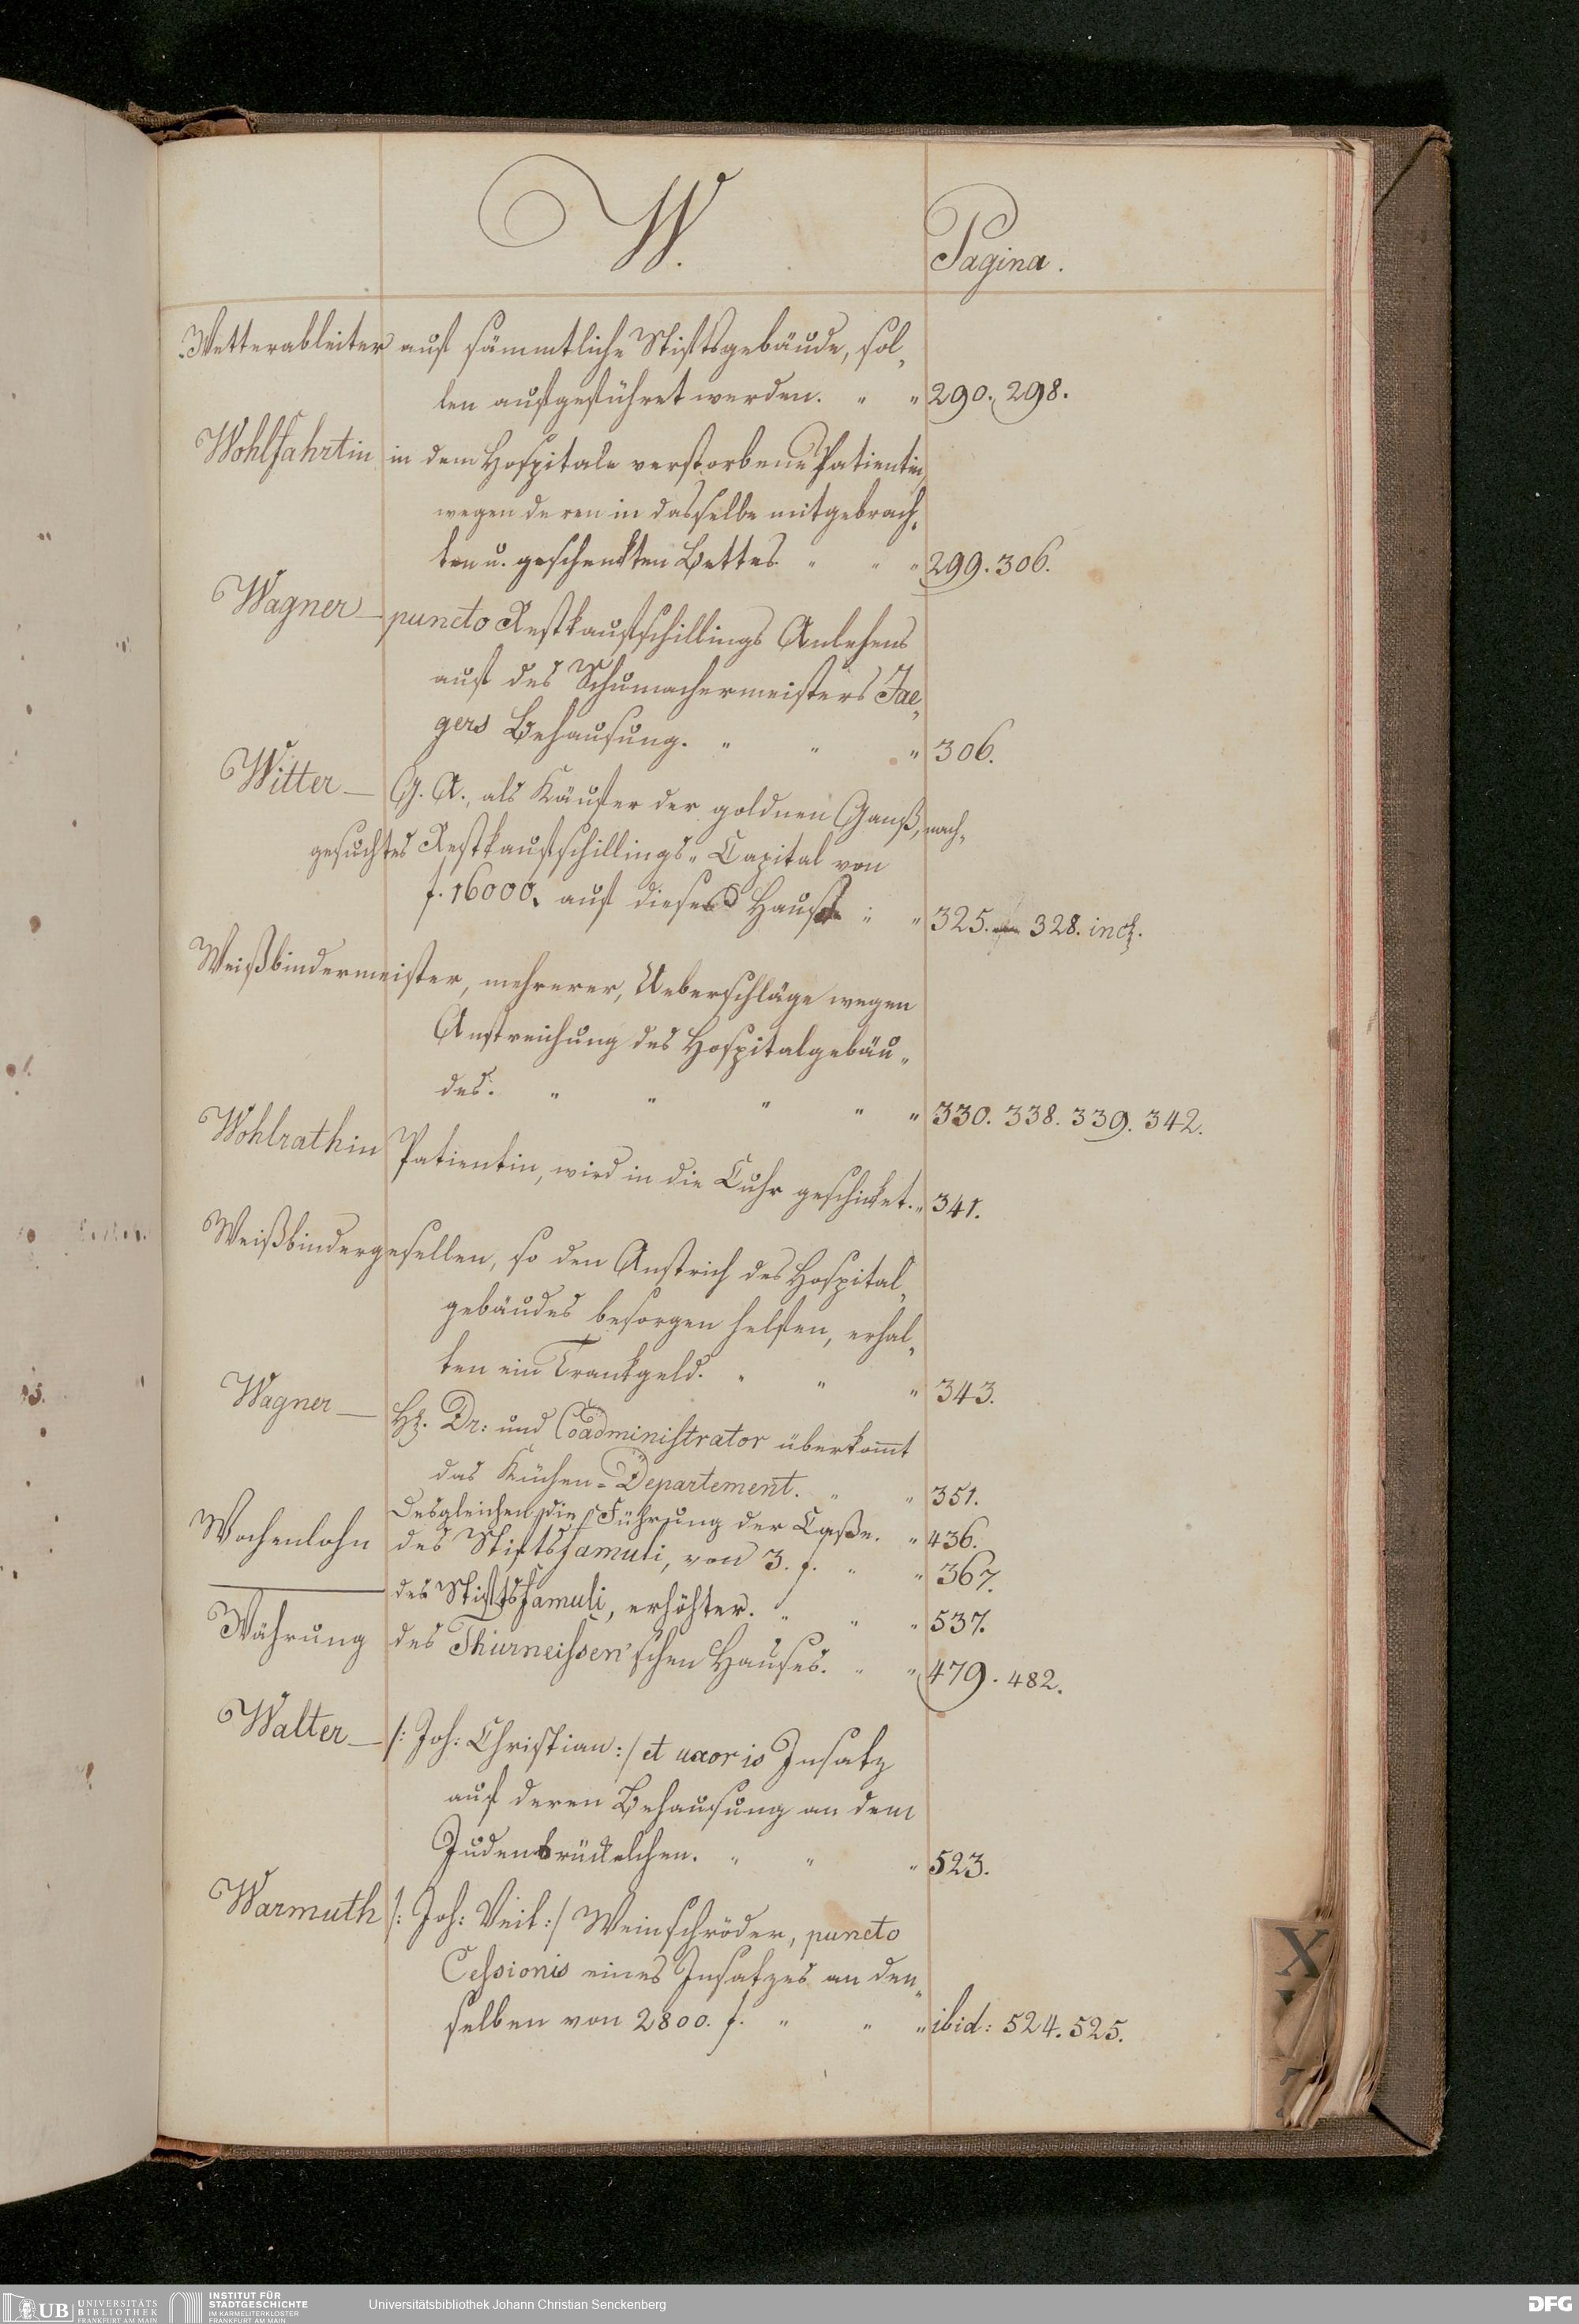 W.
Pagina.
Wetterableiter auf sämmtliche Stiftsgebäude, sol„
len aufgeführet werden. „ „ 290. 298.
Wohlfahrtin in dem Hospitale verstorbene Patientin,
wegen deren in dasselbe mitgebrach„
ten u. geschenkten Bettes. „ „ „ 299. 306.
Wagner — puncto Restkaufschillings Anlehens
auf des Schumachermeisters Jae„
gers Behausung. „ „ „ 306.
Witter — G. A., als Käufer der goldnen Ganß, nach„
gesuchtes Restkaufschillings„ Capital von
f. 16000. auf dieses Hauß „ „ 325. 328. incl.
Weißbindermeister, mehrerer, Ueberschläge wegen
Anstreichung des Hospitalgebäu„
des. „ „ „ „ „ 330. 338. 339. 342.
Wohlrathin Patientin, wird in die Cuhr geschicket. „ 341.
Weißbindergesellen, so den Anstrich des Hospital„
gebäudes besorgen helfen, erhal„
ten ein Trankgeld. „ „ „ 343.
Wagner — H. Dr: und Coadministrator überkom̅t
das Küchen=Departement. „ „ 351.
Desgleichen die Führung der Caße. „ 436.
Wochenlohn des Stiftsfamuli, von 3. f. „ „ 367.
——— des Stiftsfamuli, erhöhter. „ „ „ 537.
Währung des Thurneissen'schen Hauses. „ „ 479. 482.
Walter — /: Joh: Christian :/ et uxoris Insatz
auf deren Behausung an dem
Judenbrückelchen. „ „ „ 523.
Warmuth /: Joh: Veit :/ Weinschröder, puncto
Cessionis eines Insatzes an den„
selben von 2800. f. „ „ „ ibid: 524. 525.
X
UB UNIVERSITÄTS BIBLIOTHEK FRANKFURT AM MAIN
INSTITUT FÜR STADTGESCHICHTE IM KARMELITERKLOSTER FRANKFURT AM MAIN
Universitätsbibliothek Johann Christian Senckenberg
DFG